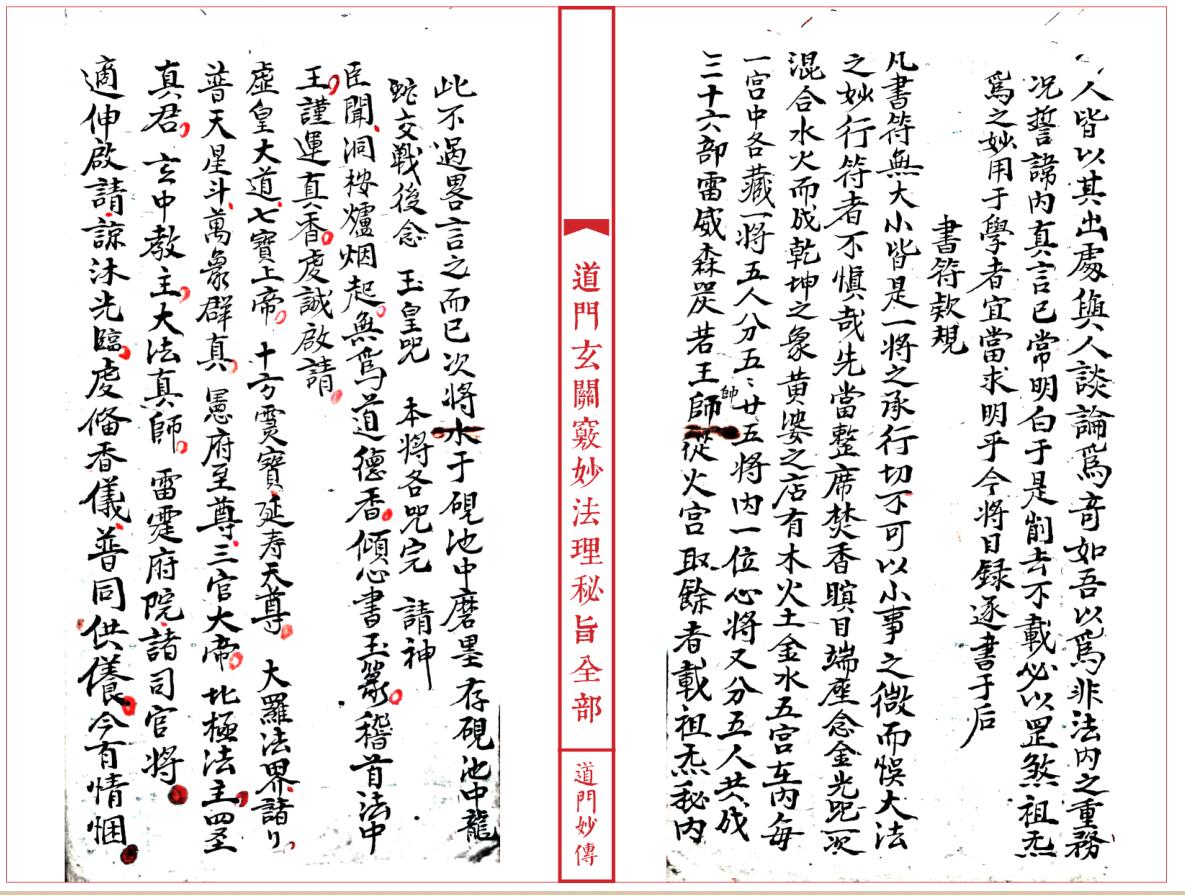 人皆以其出處與人談論爲奇如吾以爲非法内之重務
况誓諱内真言已常明白于是削去不載必以罡煞祖炁
爲之妙用于學者宜當求明乎今將目録逐書于后
書符欵規
凡書符無大小皆是一將之承行切不可以小事之微而悞大法
之妙行符者不慎哉先當整席焚香瞑目端座念金光咒一次
混合水火而成乾坤之象黄婆之店有木火土金水五宫在内每
一宫中各藏一將五人分五〻廿五將内一位心將又分五人共成
三十六部雷威森罗若王師帥從火宫取餘者載祖炁秘内
道門玄關竅妙法理秘旨全部
道門妙傳
此不過畧言之而已次將水于硯池中磨墨存硯池中龍
蛇交戰後念 玉皇咒 本將各咒完 請神
臣聞洞桉爐烟起無爲道德香傾心書玉篆稽首法中
王謹運真香虔誠啟請
虚皇大道七寳上帝 十方灵寳延寿天尊 大羅法界諸
普天星斗萬象群真 憲府至尊三官大帝北極法主四圣
真君玄中教主大法真師 雷霆府院諸司官將
適伸啟請諒沐光臨虔俻香儀普同供養今有情悃